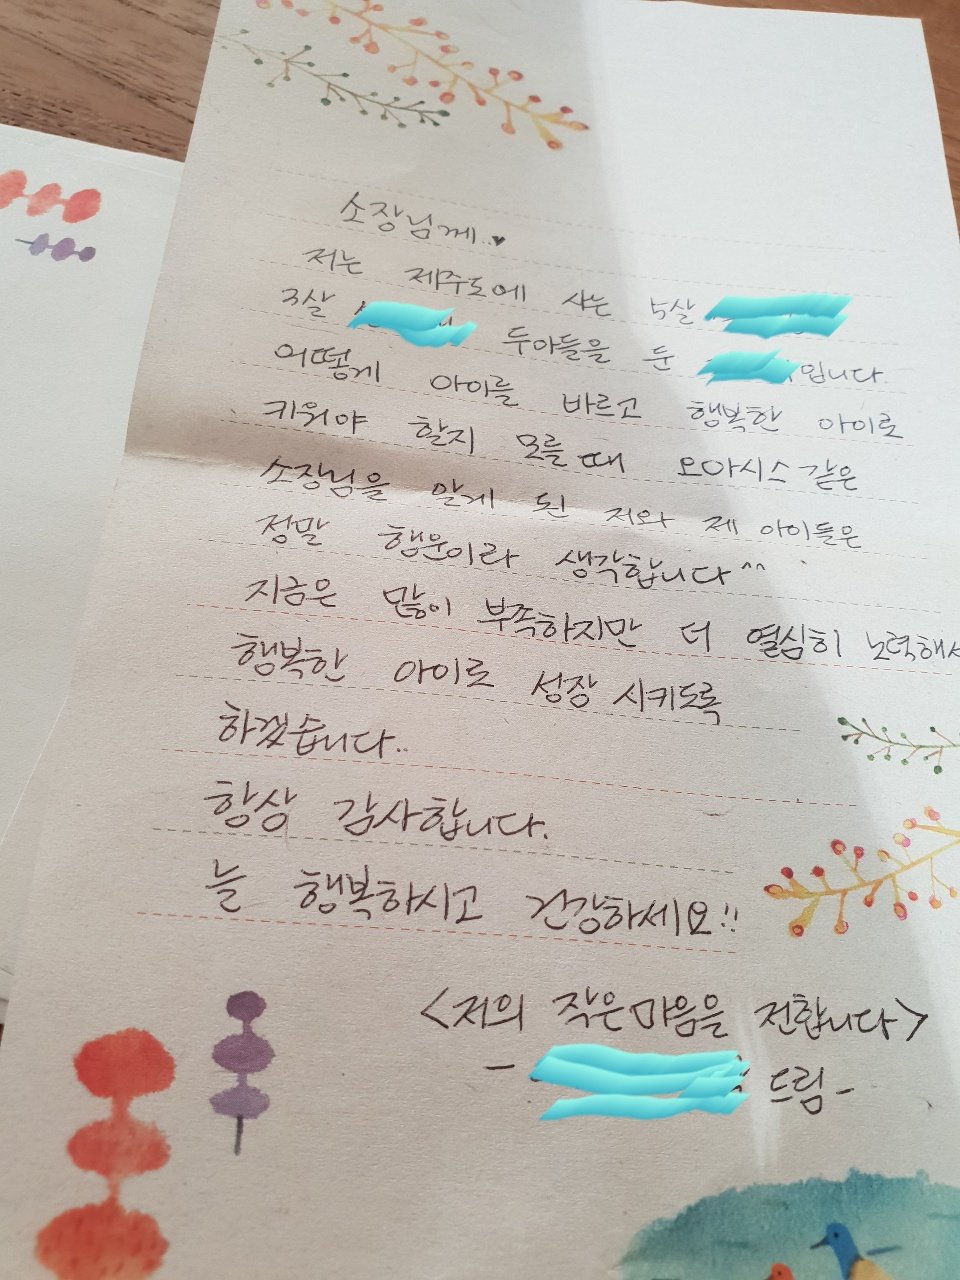 소장님께..♥
저는 제주도에 사는 5살
3살 두아들을 둔 입니다.
어떻게 아이를 바르고 행복한 아이로
키워야 할지 모를 때 오아시스 같은
소장님을 알게 된 저와 제 아이들은
정말 행운이라 생각합니다^^
지금은 많이 부족하지만 더 열심히 노력해서
행복한 아이로 성장 시키도록
하겠습니다..
항상 감사합니다.
늘 행복하시고 건강하세요!!
<저의 작은마음을 전합니다>
- 드림-